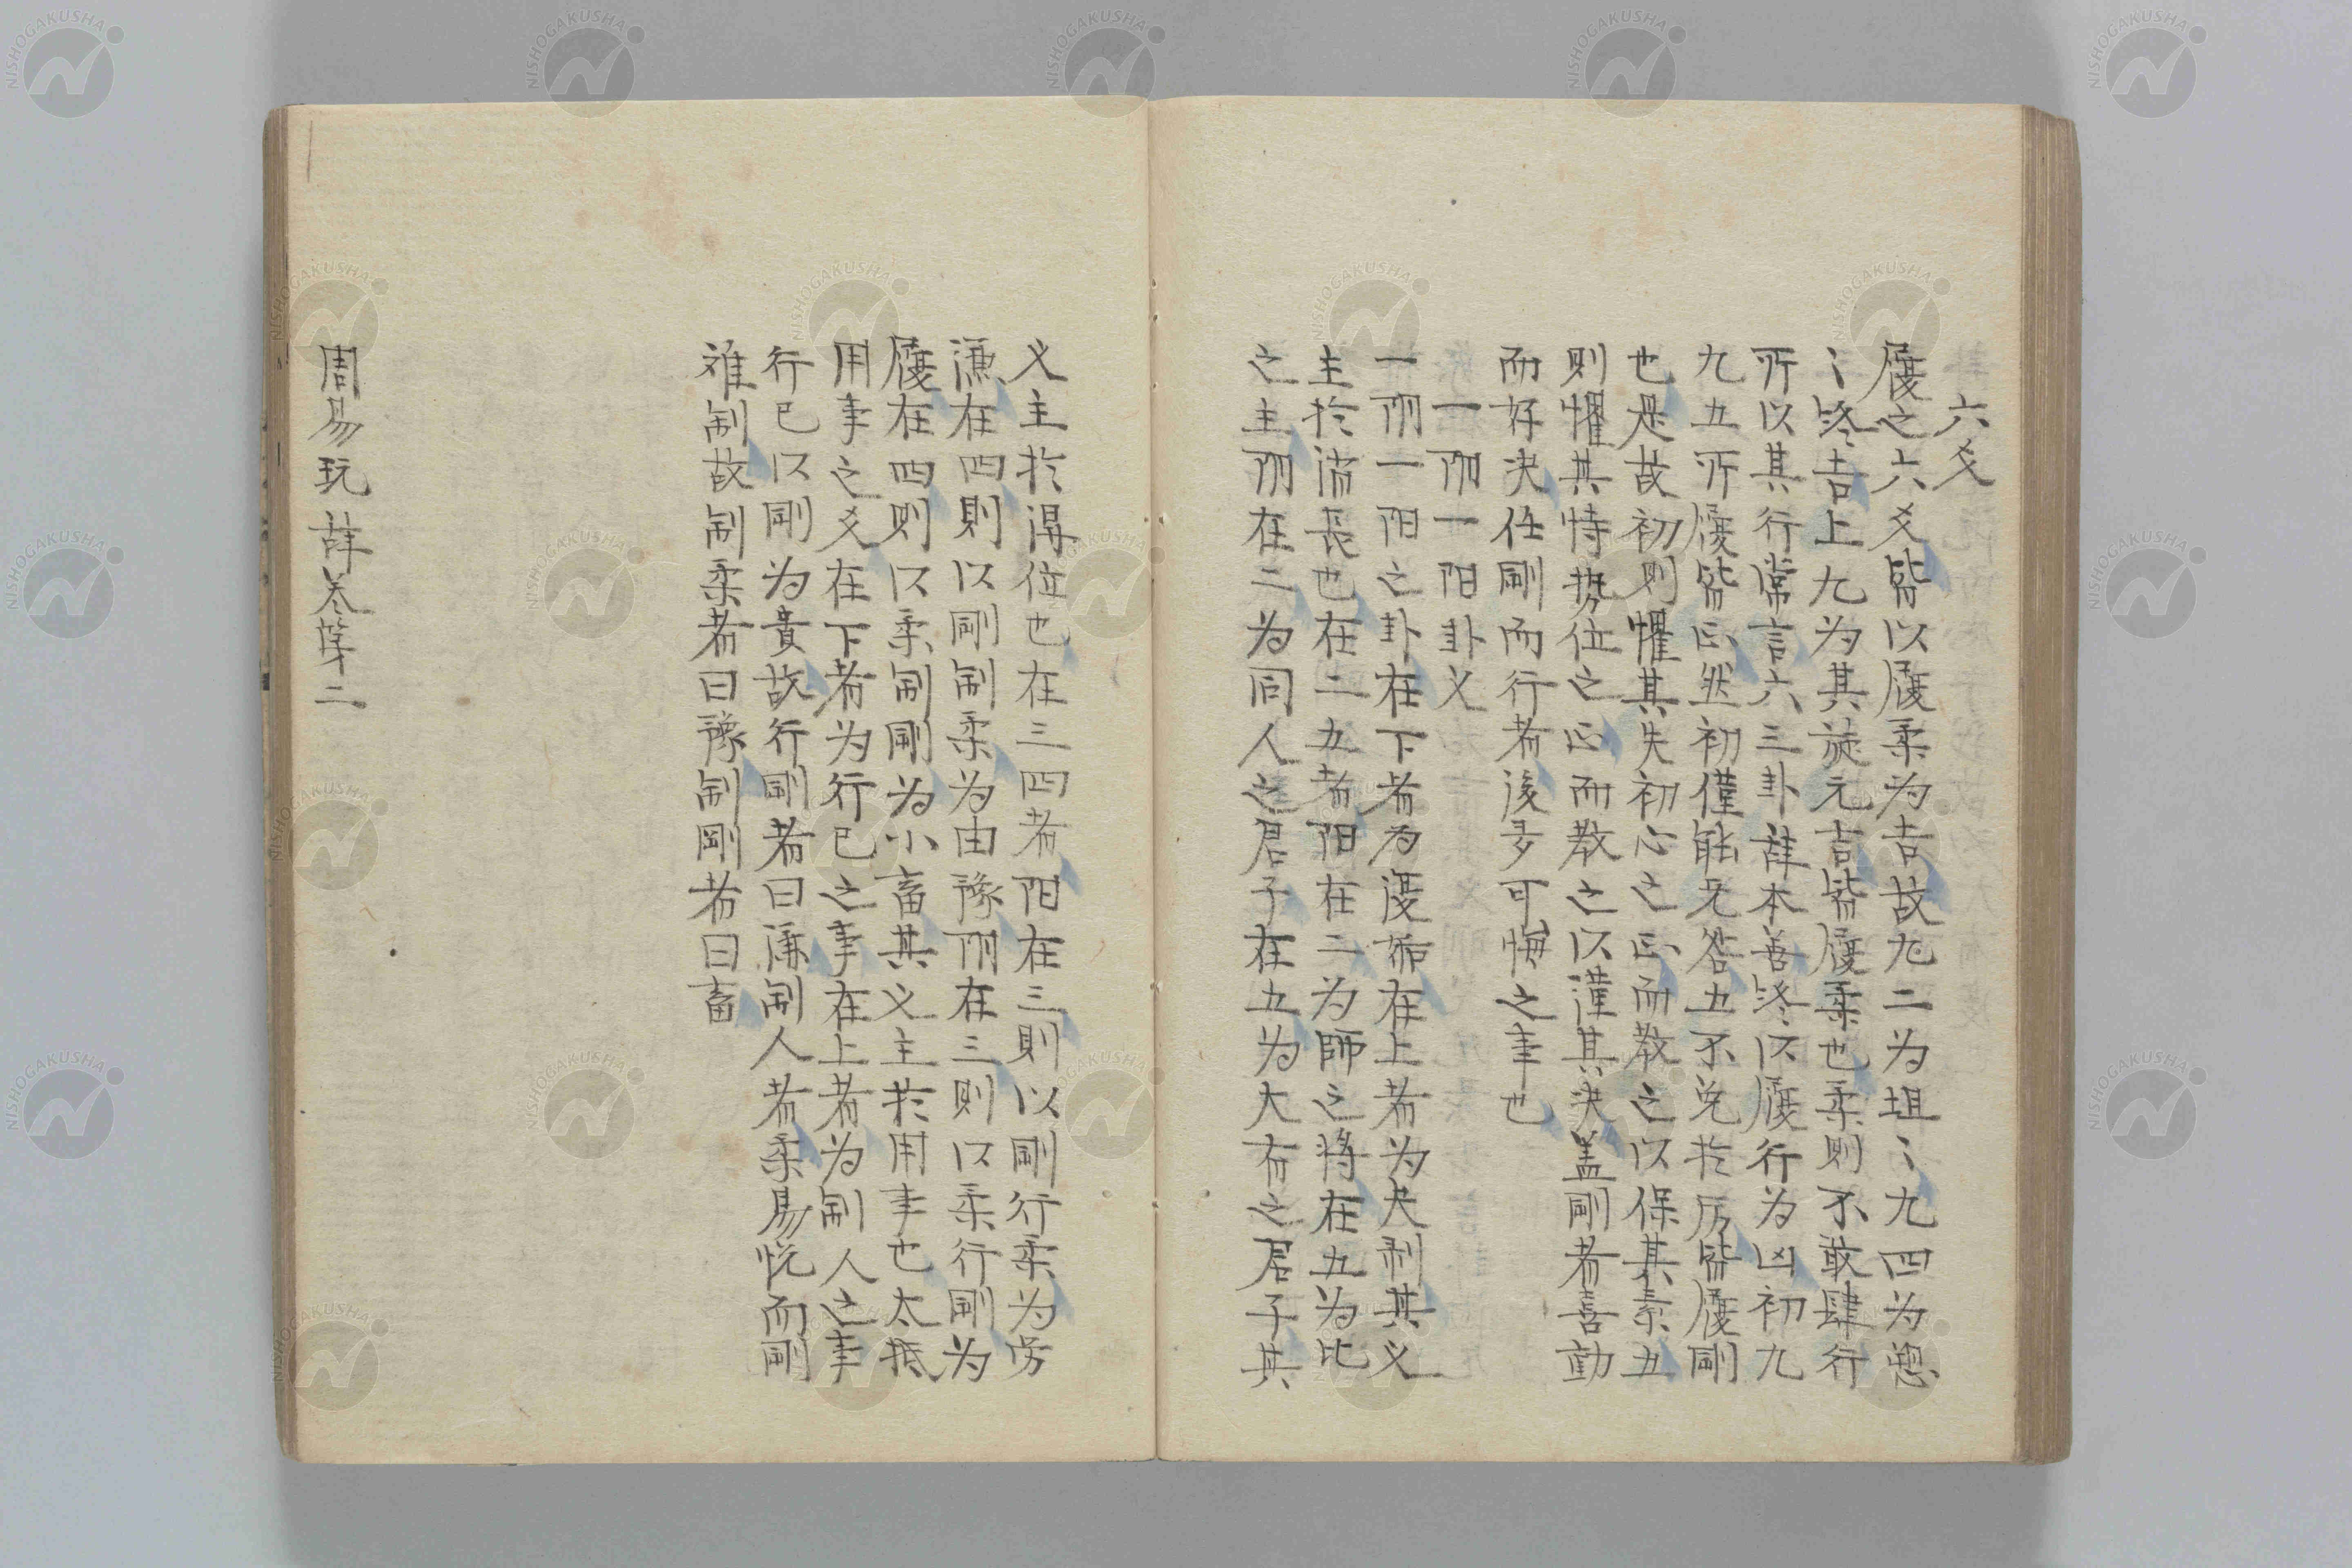 六爻
履之六爻皆以履柔为吉故九二为坦〻九四为愬
〻终吉上九为其旋元吉皆履柔也柔则不敢肆行
所以其行常言六三卦辞本善终以履行为凶初九
九五所履皆正然初僅能无咎五不免於厉皆履剛
也是故初则懼其失初心之正而教之以保其素五
则懼其恃势位之正而教之以谨其决盖剛者喜動
而好决任剛而行者後多可悔之事也
一阴一阳卦义
一阴一阳之卦在下者为復姤在上者为夬剥其义
主於消長也在二五者阳在二为師之将在五为比
之主阴在二为同人之君子在五为大有之君子其
义主於得位也在三四者阳在三則以剛行柔为劳
谦在四則以剛制柔为由豫阴在三则以柔行剛为
履在四则以柔制剛为小畜其义主於用事也大抵
用事之爻在下者为行己之事在上者为制人之事
行己以剛为貴故行剛者曰谦制人者柔易悦而剛
难制故制柔者曰豫制剛者曰畜
周易玩辞卷第二
NISHOGAKUSHA